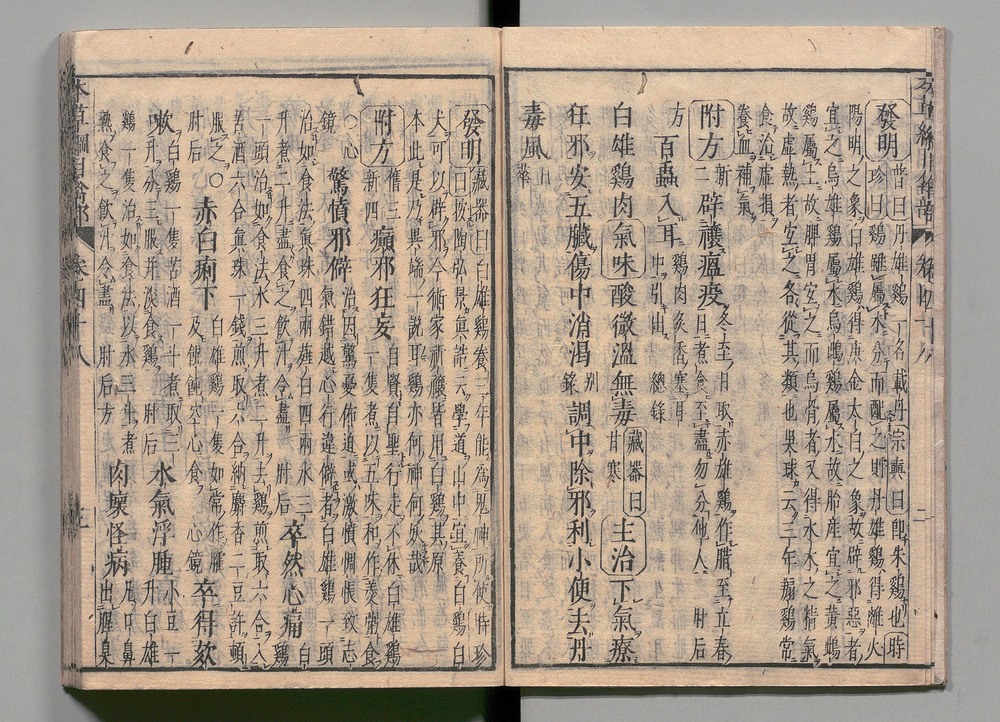 發明 普曰丹雄雞一名載丹 宗奭曰即朱雞也 時
珍曰雞雖屬木分而配之則丹雄雞得離火
陽明之象白雄雞得庚金太白之象故辟邪惡者
宜之烏雄雞屬木烏雌雞屬水故胎產宜之黃雌
雞屬土故脾胃宜之而烏骨者又得水木之精氣
故虛熱者宜之各從其類也吳球云三年騸雞常
食治虛損
養血補氣
附方 新二 辟禳瘟疫 冬至日取赤雄雞作腊至立春日煮食至盡勿分他人 肘后
方 百蟲入耳 雞肉炙香塞耳中引出 總錄
白雄雞肉 氣味 酸微溫無毒 藏器曰甘寒 主治 下氣療
狂邪安五臟傷中消渴 別錄 調中除邪利小便去丹
毒風 日華
發明 藏器曰白雄雞養三年能為鬼神所使 時珍
曰按陶弘景真誥云學道山中宜養白雞白
犬可以辟邪今術家祈禳皆用白雞其原
本此是乃異端一說耳雞亦何神何妖哉
附方 舊三新四 癲邪狂妄 自賢自聖行走不休白雄雞一隻煮以五味和作羹粥食
○心鏡 驚憤邪僻 治因驚憂怖迫或激憤惆悵致志氣錯越心行違僻者白雄雞一頭
治如食法真珠四兩薤白四兩水三升煮二升盡食之飲汁令盡 肘后 卒然心痛 白雄雞
一頭治如食法水三升煮二升去雞煎取六合入苦酒六合真珠一錢煎取六合納麝香二豆許頓
服之○肘后 赤白痢下 白雄雞一隻如常作臛及餛飩空心食○心鏡 卒得欬
嗽 白雞一隻苦酒一斗煮取三升分三服并淡食雞 肘后 水氣浮腫 小豆一升白雄
雞一隻治如食法以水三斗煮熟食之飲汁令盡 肘后方 肉壞怪病 凡口鼻出腥臭
本草綱目禽部 卷四十八